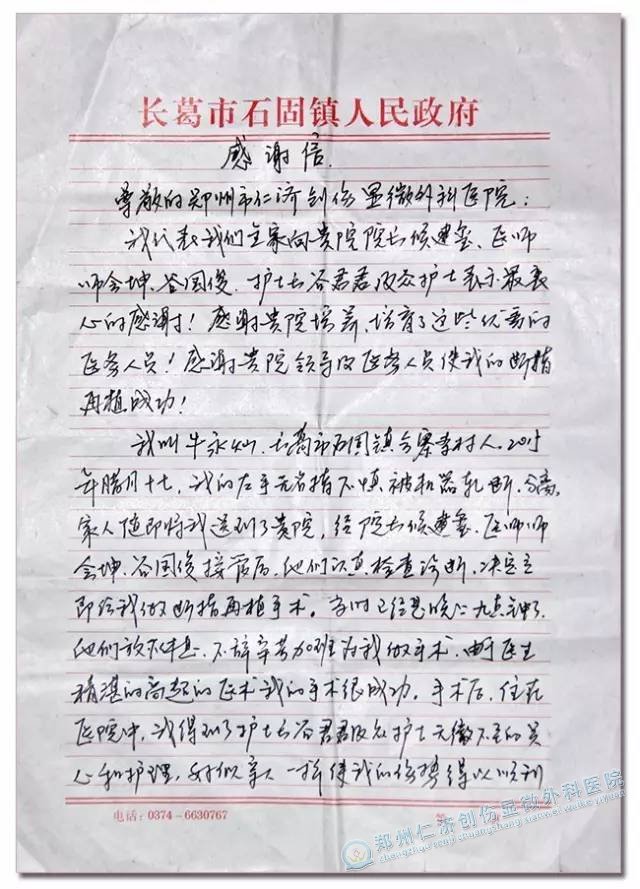 长葛市石固镇人民政府
感谢信.
尊敬的郑州市仁济创伤显微外科医院：
我代表我们全家向贵院院长候建玺、医师
师会坤、谷国俊、护士长谷君君及众护士表示最衷
心的感谢！感谢贵院培养、培育了这些优秀的
医务人员！感谢贵院领导及医务人员使我的断指
再植成功！
我叫牛永灿，长葛市石固镇合寨李村人。2015
年腊月十七，我的左手无名指不慎被机器轧断，分离，
家人随即将我送到了贵院，经院长候建玺、医师师
会坤、谷国俊接管后，他们认真检查诊断，决定立
即给我做断指再植手术。当时已经是晚上九点钟了，
他们放弃休息，不辞辛苦加班为我做手术，由于医生
精湛的高超的医术我的手术很成功。手术后，住在
医院中，我得到了护士长谷君君及众护士无微不至的关
心和护理，对似亲人一样使我的伤势得以顺利
电话：0374－6630767
第
郑州仁济创伤显微外科医院
zhengzhourenjichuangshangxianweiwaikeyiyuan